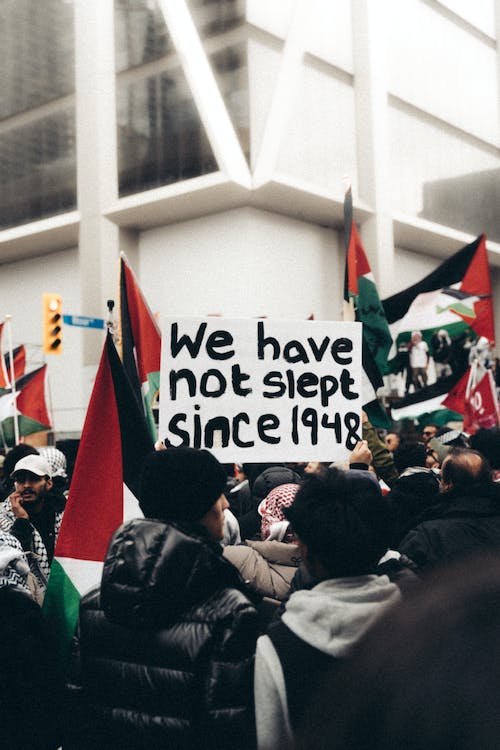 We have
not slept
since 1948